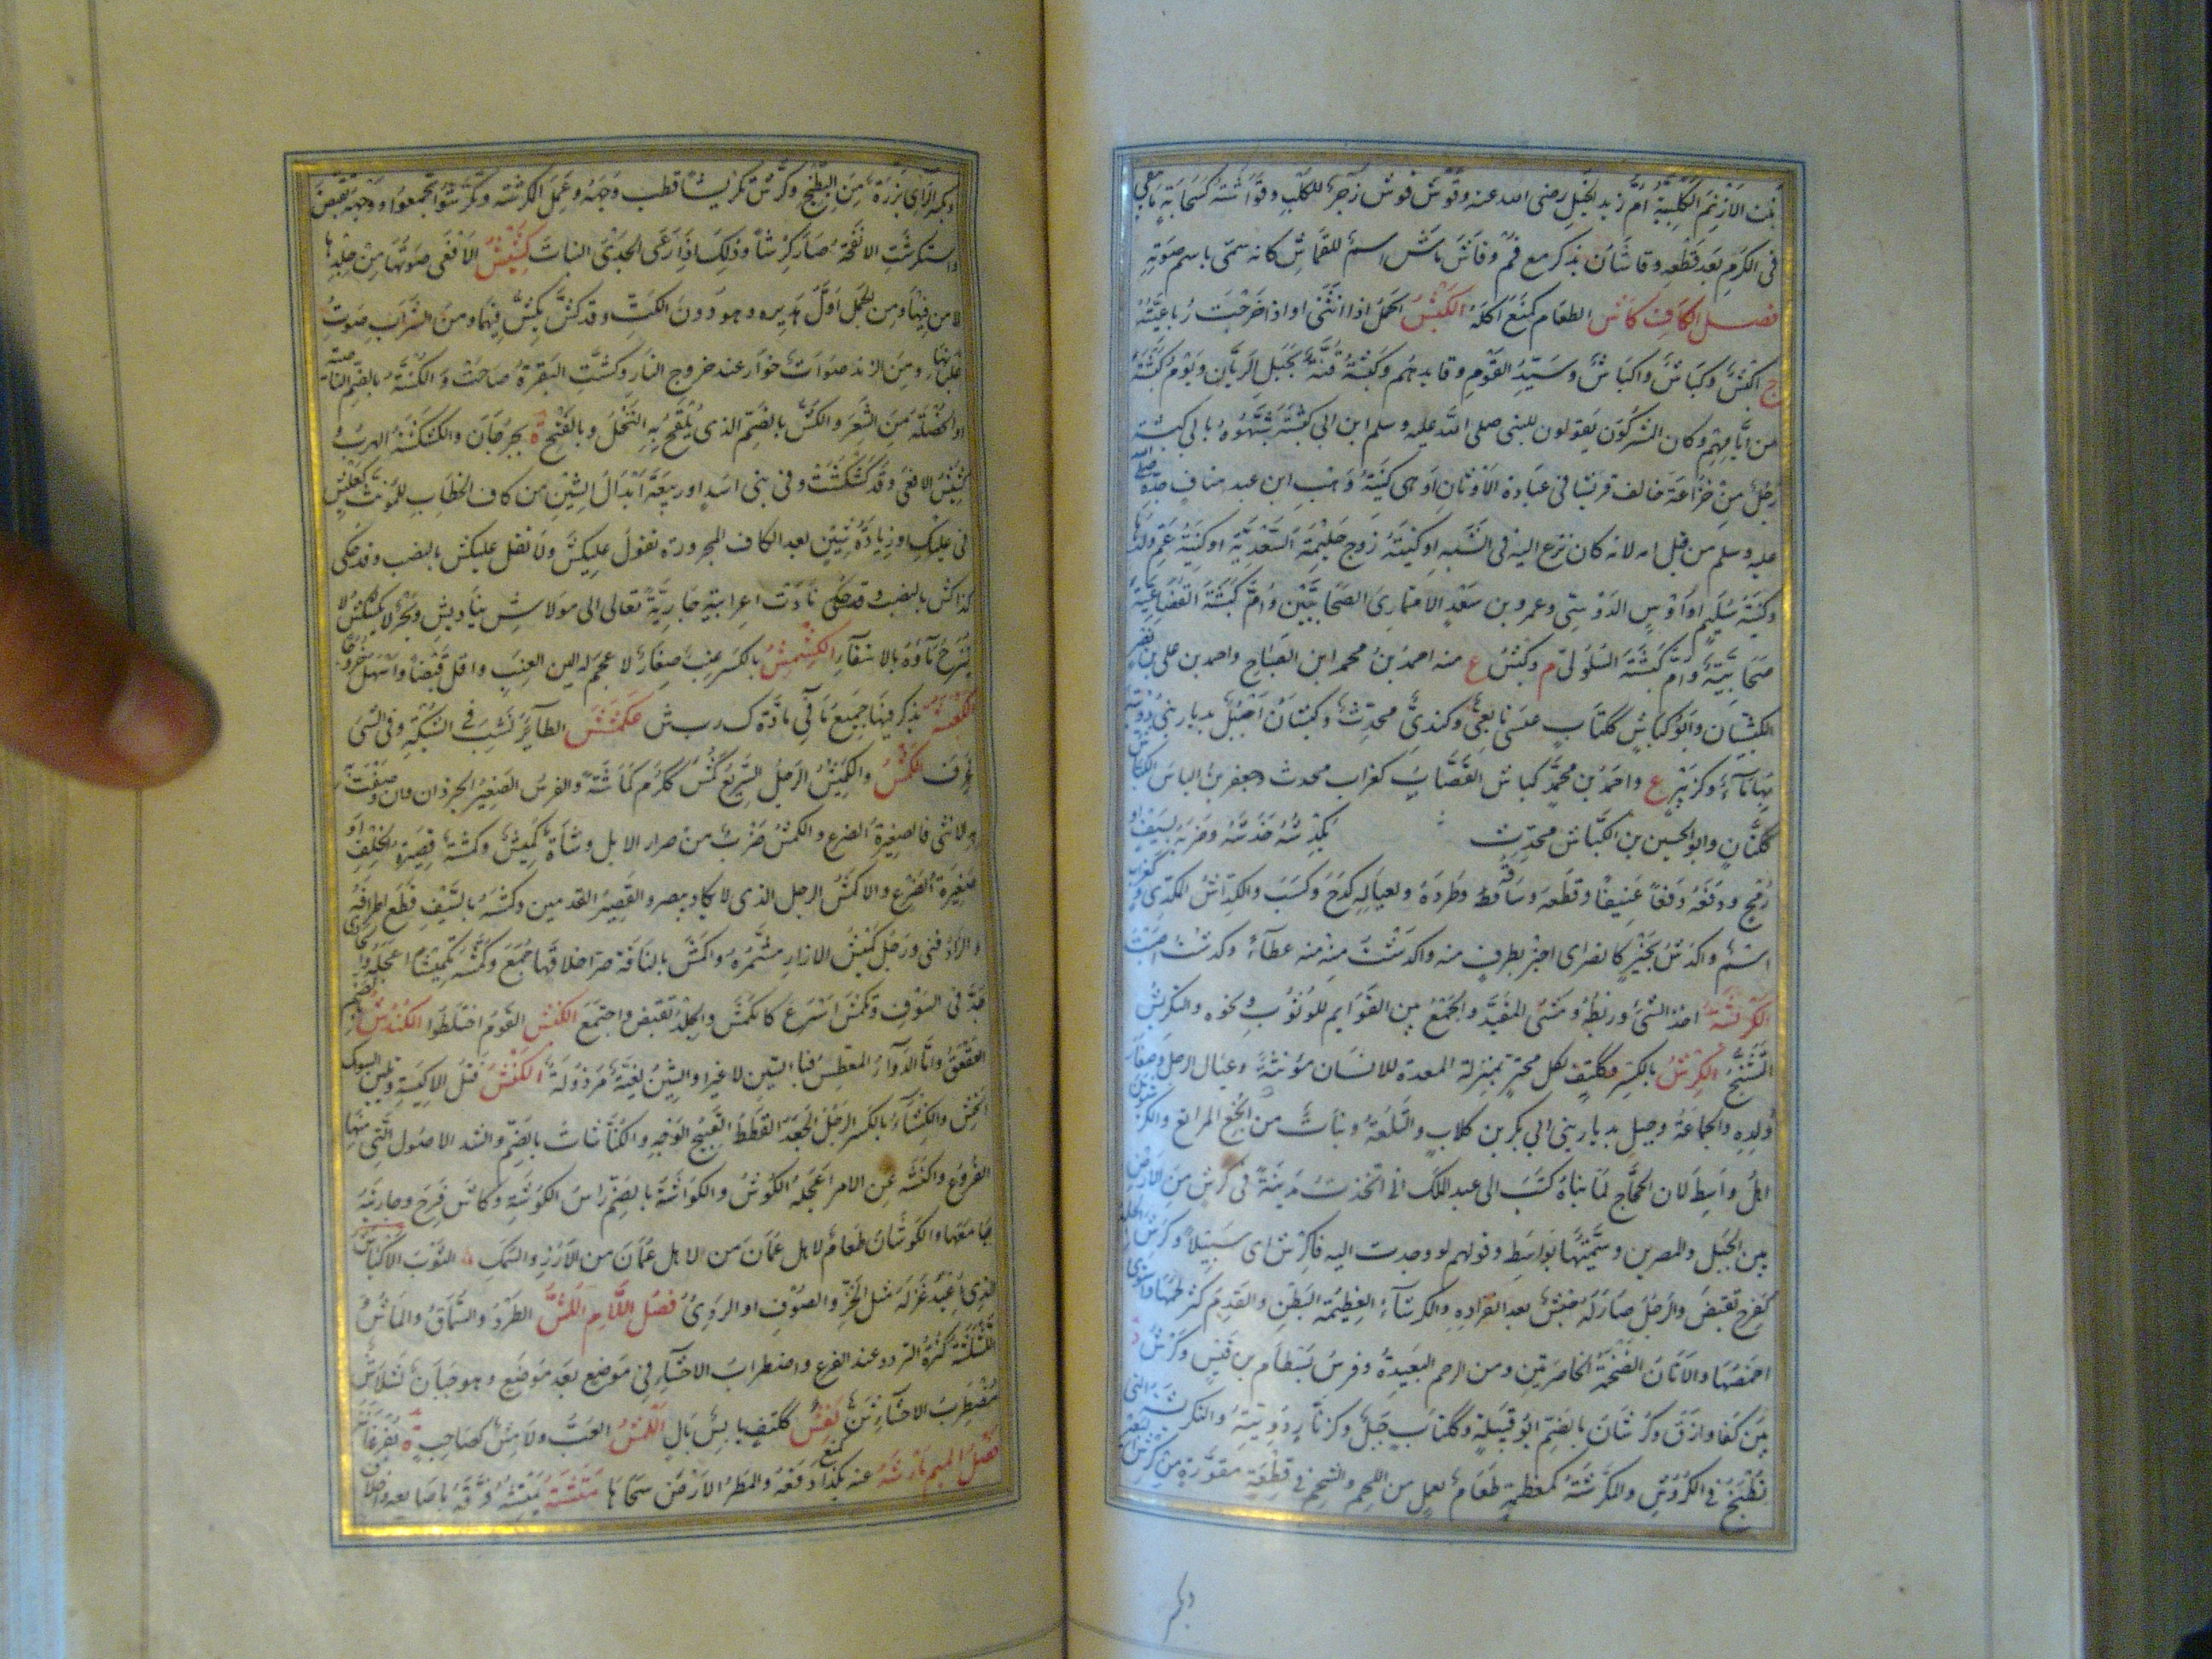 بنت الازنم الكلبية ام زيد الخيل رضى الله عنه وقوش قوش زجر للكلب وقواشة كسحابة ما يبقى
فى الكرم بعد قطعه وقاشان يذكر مع قم وقاش ماش اسم للقماش كانه سمى باسم صوته
فصل الكاف كاش الطعام كمنع اكله الكبش الحمل اذا اثنى او اذا خرجت رباعيته
ج اكبش وكباش واكباش وسيد القوم وقايدهم وكبشة قنة بجبل الريان ويوم كبشة
من ايامهم وكان المشركون يقولون للنبى صلى الله عليه وسلم ابن ابى كبشة شبهوه بابى كبشة
رجل من خزاعة خالف قريشا فى عبادة الاوثان او هى كنية وهب ابن عبد مناف جده صلى الله
عليه وسلم من قبل امه لانه كان نزع اليه فى الشبه او كنية زوج حليمة السعدية او كنية عم ولدها
وكنية سليم او اوس الدوسى وعمرو بن سعد الانمارى الصحابيين وام كبشة القضاعية
صحابية وام كبشة السلولى م وكبش ع منه احمد بن محمد ابن الصباح واحمد بن على بن نصر
الكبشيان وابو كباش ككتاب عيسى تابعى وكندى محدث وكبشان اجبل بديار بنى ذويبة
بها ماء وكزبير ع واحمد بن محمد كباش القصاب كغراب محدث وجعفر بن الياس الكباش
ككتان وابو الحسين بن الكباش محدث يكدشه خدشه وضربه بسيف او
رمح ودفعه دفعا عنيفا وقطعه وساقه وطرده ولعياله كدح وكسب والكداش المكدى
اسم واكدش بخير كاضراى اخبر بطرف منه واكدشت منه عطاء وكدشت اصبت
الكربشة اخذ الشى وربطه ومشى المقيد والجمع بين القوايم للوثوب ونحوه والتكربش
التشنج الكرش بالكسر وككتف لكل مجتر بمنزلة المعدة للانسان مؤنثة وعيال الرجل وصغار
ولده والجماعة وجبل بديار بنى ابى بكر بن كلاب والتلعة ونبات من انجع المراتع والكرش
اهل واسط لان الحجاج لما بناه كتب الى عبد الملك انى اتخذت مدينة فى كرش من الارض
بين الجبل والمصرين وسميتها بواسط وقولهم لو وجدت اليه فاكرش اى سبيلا وكرش الجلد
كفرح تقبض والرجل صار له جيش بعد انفراده والكرشاء العظيمة البطن والقدم كثر لحمها واستوى
اخمصها والاتان الضخمة الخاصرتين ومن الرحم البعيدة وفرس بسطام بن قيس وكرش
بين كفا وازق وكرشان بالضم ابو قبيلة وككتاب جبل وكزنار دويبة والتكرشة التى
تطبخ فى الكروش والمكرشة كمعظمة طعام يعمل من اللحم والشحم فى قطعة مقورة من كرش
وكبر
وكبر الراى بزرة من البطيخ وكرش تكريشا قطب وجهه وعمل الكرشة وتكرشوا تجمعوا ووجهه تقبض
واستكرشت الانفحة صار كرشا وذلك اذا رعى الجدى النبات كشيش الافعى صوتها من جلدها
لا من فيها ومن الجمل اول هديره وهو دون الكت وقد كش يكش فيهما ومن الشراب صوت
غليانها ومن الزند صوت خوار عند خروج النار وكشت البقرة صاحت والكشة بالضم الناصية
او الخصلة من الشعر والكش بالضم الذى يلقح به النخل وبالفتح ة بجرجان والكشكشة الهرب
كشيش الافعى وقد كشكشت وفى بنى اسد او ربيعة ابدال الشين من كاف الخطاب للمونث كعليش
فى عليك او زيادة شين بعد الكاف المجرورة تقول عليكش ولا تقل عليكش بالنصب وقد حكى
كذاكش بالنصب وقد حكى نادت اعرابية جارية تعالى الى مولاش يناديش وبحر لا يكشكش لا
ينزح ماؤه بالاستقاء الكشمش بالكسر عنب صغار لا عجم له الين العنب واقل قبضا واسهل خروجا
يذكر فيها جميع ما فى مادة ك ر ب ش عكشش الطاير نشب فى الشبكة وفى الشى
غرف الكمش والكميش الرجل السريع كمش ككرم كماشة والفرس الصغير الجردان فان وصفت به
الانثى فالصغيرة الضرع والكمش ضرب من صرار الابل وشاة كميش وكمشة قصيرة الخلف او
صغيرة الضرع والاكمش الرجل الذى لا يكاد يبصر والقصير القدمين وكمشه بالسيف قطع اطرافه
والزاد فنى ورجل كميش الازار مشمره واكمش بالناقة صر اخلافها جمع وكمشه تكميشا اعجله
جد فى السوق وتكمش اسرع كانكمش والجلد تقبض واجتمع الكنبش القوم اختلطوا الكندش بالضم
العقعق واما الدواء المعطس فبالسين لا غير او الشين لغية مرذولة الكنش فتل الاكسية وتليين السوك
الخشن والكنشاء بالكسر الرجل الجعد القطط القبيح الوجه والكناشات بالضم والشد الاصول التى منها
الفروع واكنشه عن الامر اعجله الكوش والكواشة بالضم راس الكوشة وكاش فزع وجاريته
جامعها والكوشان طعام لاهل عمان من الارز والسمك الثوب الاكياش
الذى اعيد غزله مثل الخز والصوف او الردى فصل اللام اللش الطرد والسماق والماش
اللشلشة كثرة التردد عند الفزع واضطراب الاحشاء فى موضع بعد موضع وهو جبان لشلاش
مضطرب الاحشاء لقش ككتف يابس بال اللمش العبث ولامش كصاحب ة بفرغانة
فصل الميم مارشه عنه بكذا دفعه والمطر الارض سحاها متشه يمتشه فرقه باصابعه واخلاف